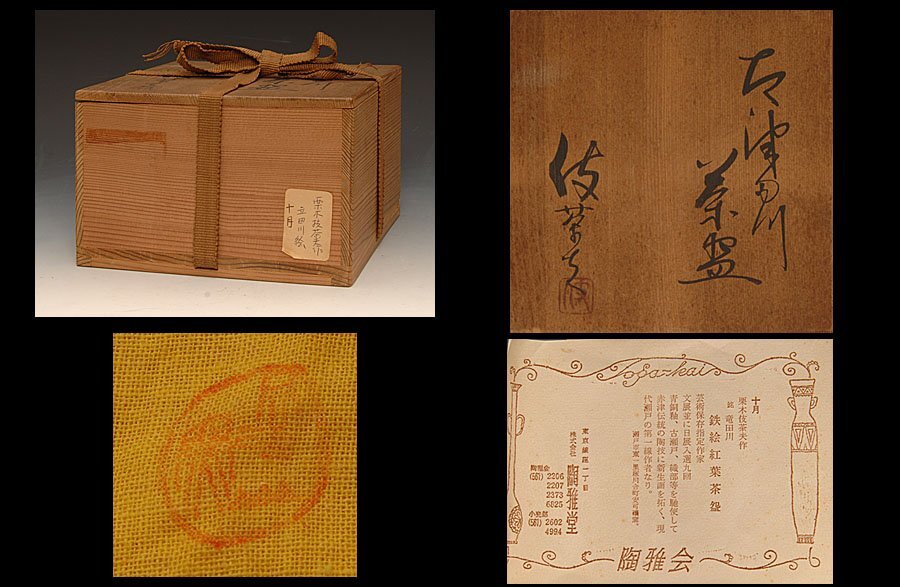 栗木伎茶夫作
立田川絵
十月
たつ田川
茶盌
伎茶夫
Toga-kai
十月
栗木伎茶夫作
銘 竜田川
鉄絵 紅葉茶盌
芸術保存指定作家
文展並に日展入選九回
青銅釉、古瀬戸、織部等を駆使して
赤津伝統の陶技に新生面を拓く、現
代瀬戸の第一線作者なり。
東京銀座一丁目
株式会社 陶雅堂
陶雅会
(561) 2206
2207
2373
6825
小売部
(561) 2602
4994
陶雅会